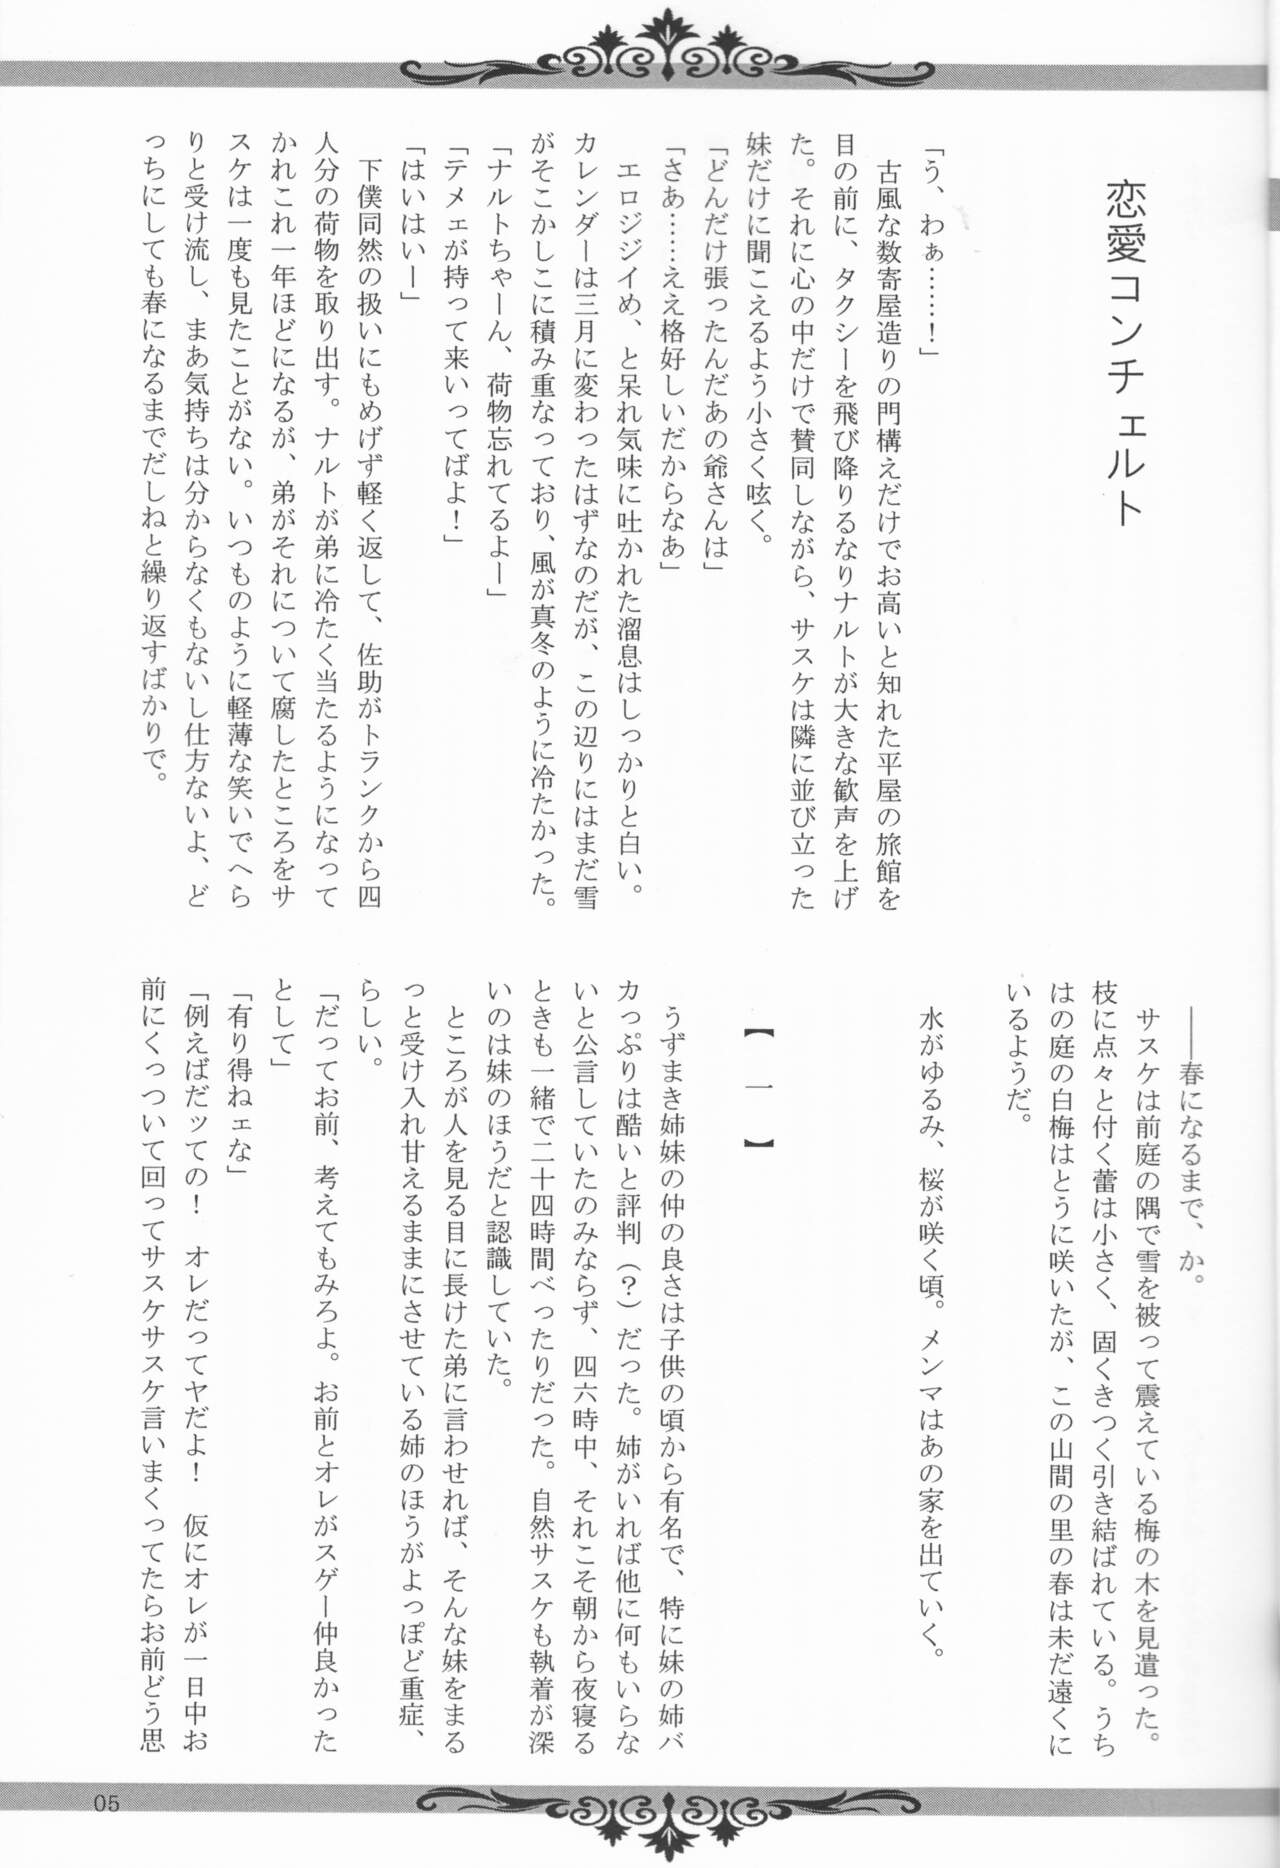 恋愛コンチェルト
「う、わぁ……！」
　古風な数寄屋造りの門構えだけでお高いと知れた平屋の旅館を
目の前に、タクシーを飛び降りるなりナルトが大きな歓声を上げ
た。それに心の中だけで賛同しながら、サスケは隣に並び立った
妹だけに聞こえるよう小さく呟く。
「どんだけ張ったんだあの爺さんは」
「さあ……ええ格好しいだからなあ」
　エロジジイめ、と呆れ気味に吐かれた溜息はしっかりと白い。
カレンダーは三月に変わったはずなのだが、この辺りにはまだ雪
がそこかしこに積み重なっており、風が真冬のように冷たかった。
「ナルトちゃーん、荷物忘れてるよー」
「テメェが持って来いってばよ！」
「はいはいー」
　下僕同然の扱いにもめげず軽く返して、佐助がトランクから四
人分の荷物を取り出す。ナルトが弟に冷たく当たるようになって
かれこれ一年ほどになるが、弟がそれについて腐したところをサ
スケは一度も見たことがない。いつものように軽薄な笑いでへら
りと受け流し、まあ気持ちは分からなくもないし仕方ないよ、ど
っちにしても春になるまでだしねと繰り返すばかりで。
　――春になるまで、か。
　サスケは前庭の隅で雪を被って震えている梅の木を見遣った。
枝に点々と付く蕾は小さく、固くきつく引き結ばれている。うち
はの庭の白梅はとうに咲いたが、この山間の里の春は未だ遠くに
いるようだ。
　水がゆるみ、桜が咲く頃。メンマはあの家を出ていく。
【　一　】
　うずまき姉妹の仲の良さは子供の頃から有名で、特に妹の姉バ
カっぷりは酷いと評判（？）だった。姉がいれば他に何もいらな
いと公言していたのみならず、四六時中、それこそ朝から夜寝る
ときも一緒で二十四時間べったりだった。自然サスケも執着が深
いのは妹のほうだと認識していた。
　ところが人を見る目に長けた弟に言わせれば、そんな妹をまる
っと受け入れ甘えるままにさせている姉のほうがよっぽど重症、
らしい。
「だってお前、考えてもみろよ。お前とオレがスゲー仲良かった
として」
「有り得ねェな」
「例えばだッての！　オレだってヤだよ！　仮にオレが一日中お
前にくっついて回ってサスケサスケ言いまくってたらお前どう思
05